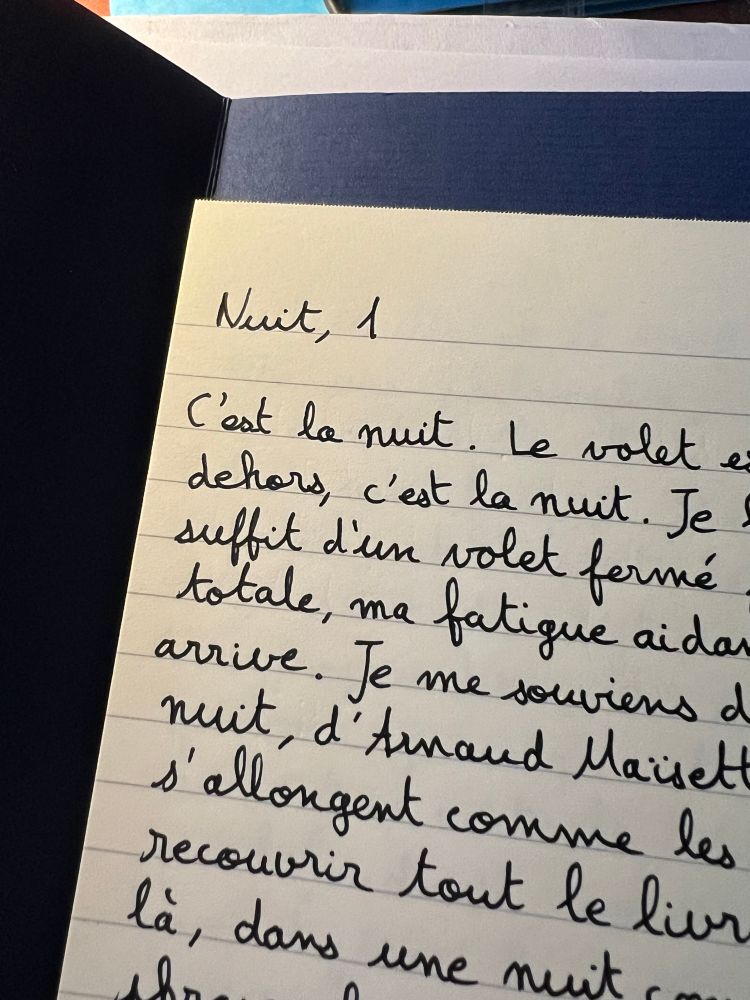 Nuit, 1
C'est la nuit. Le volet
dehors, c'est la nuit. Je
suffit d'un volet fermé
totale, ma fatigue
arrive. Je me souviens
nuit, d'Arnaud
s'allongent comme les
recouvrir tout le
là, dans une nuit